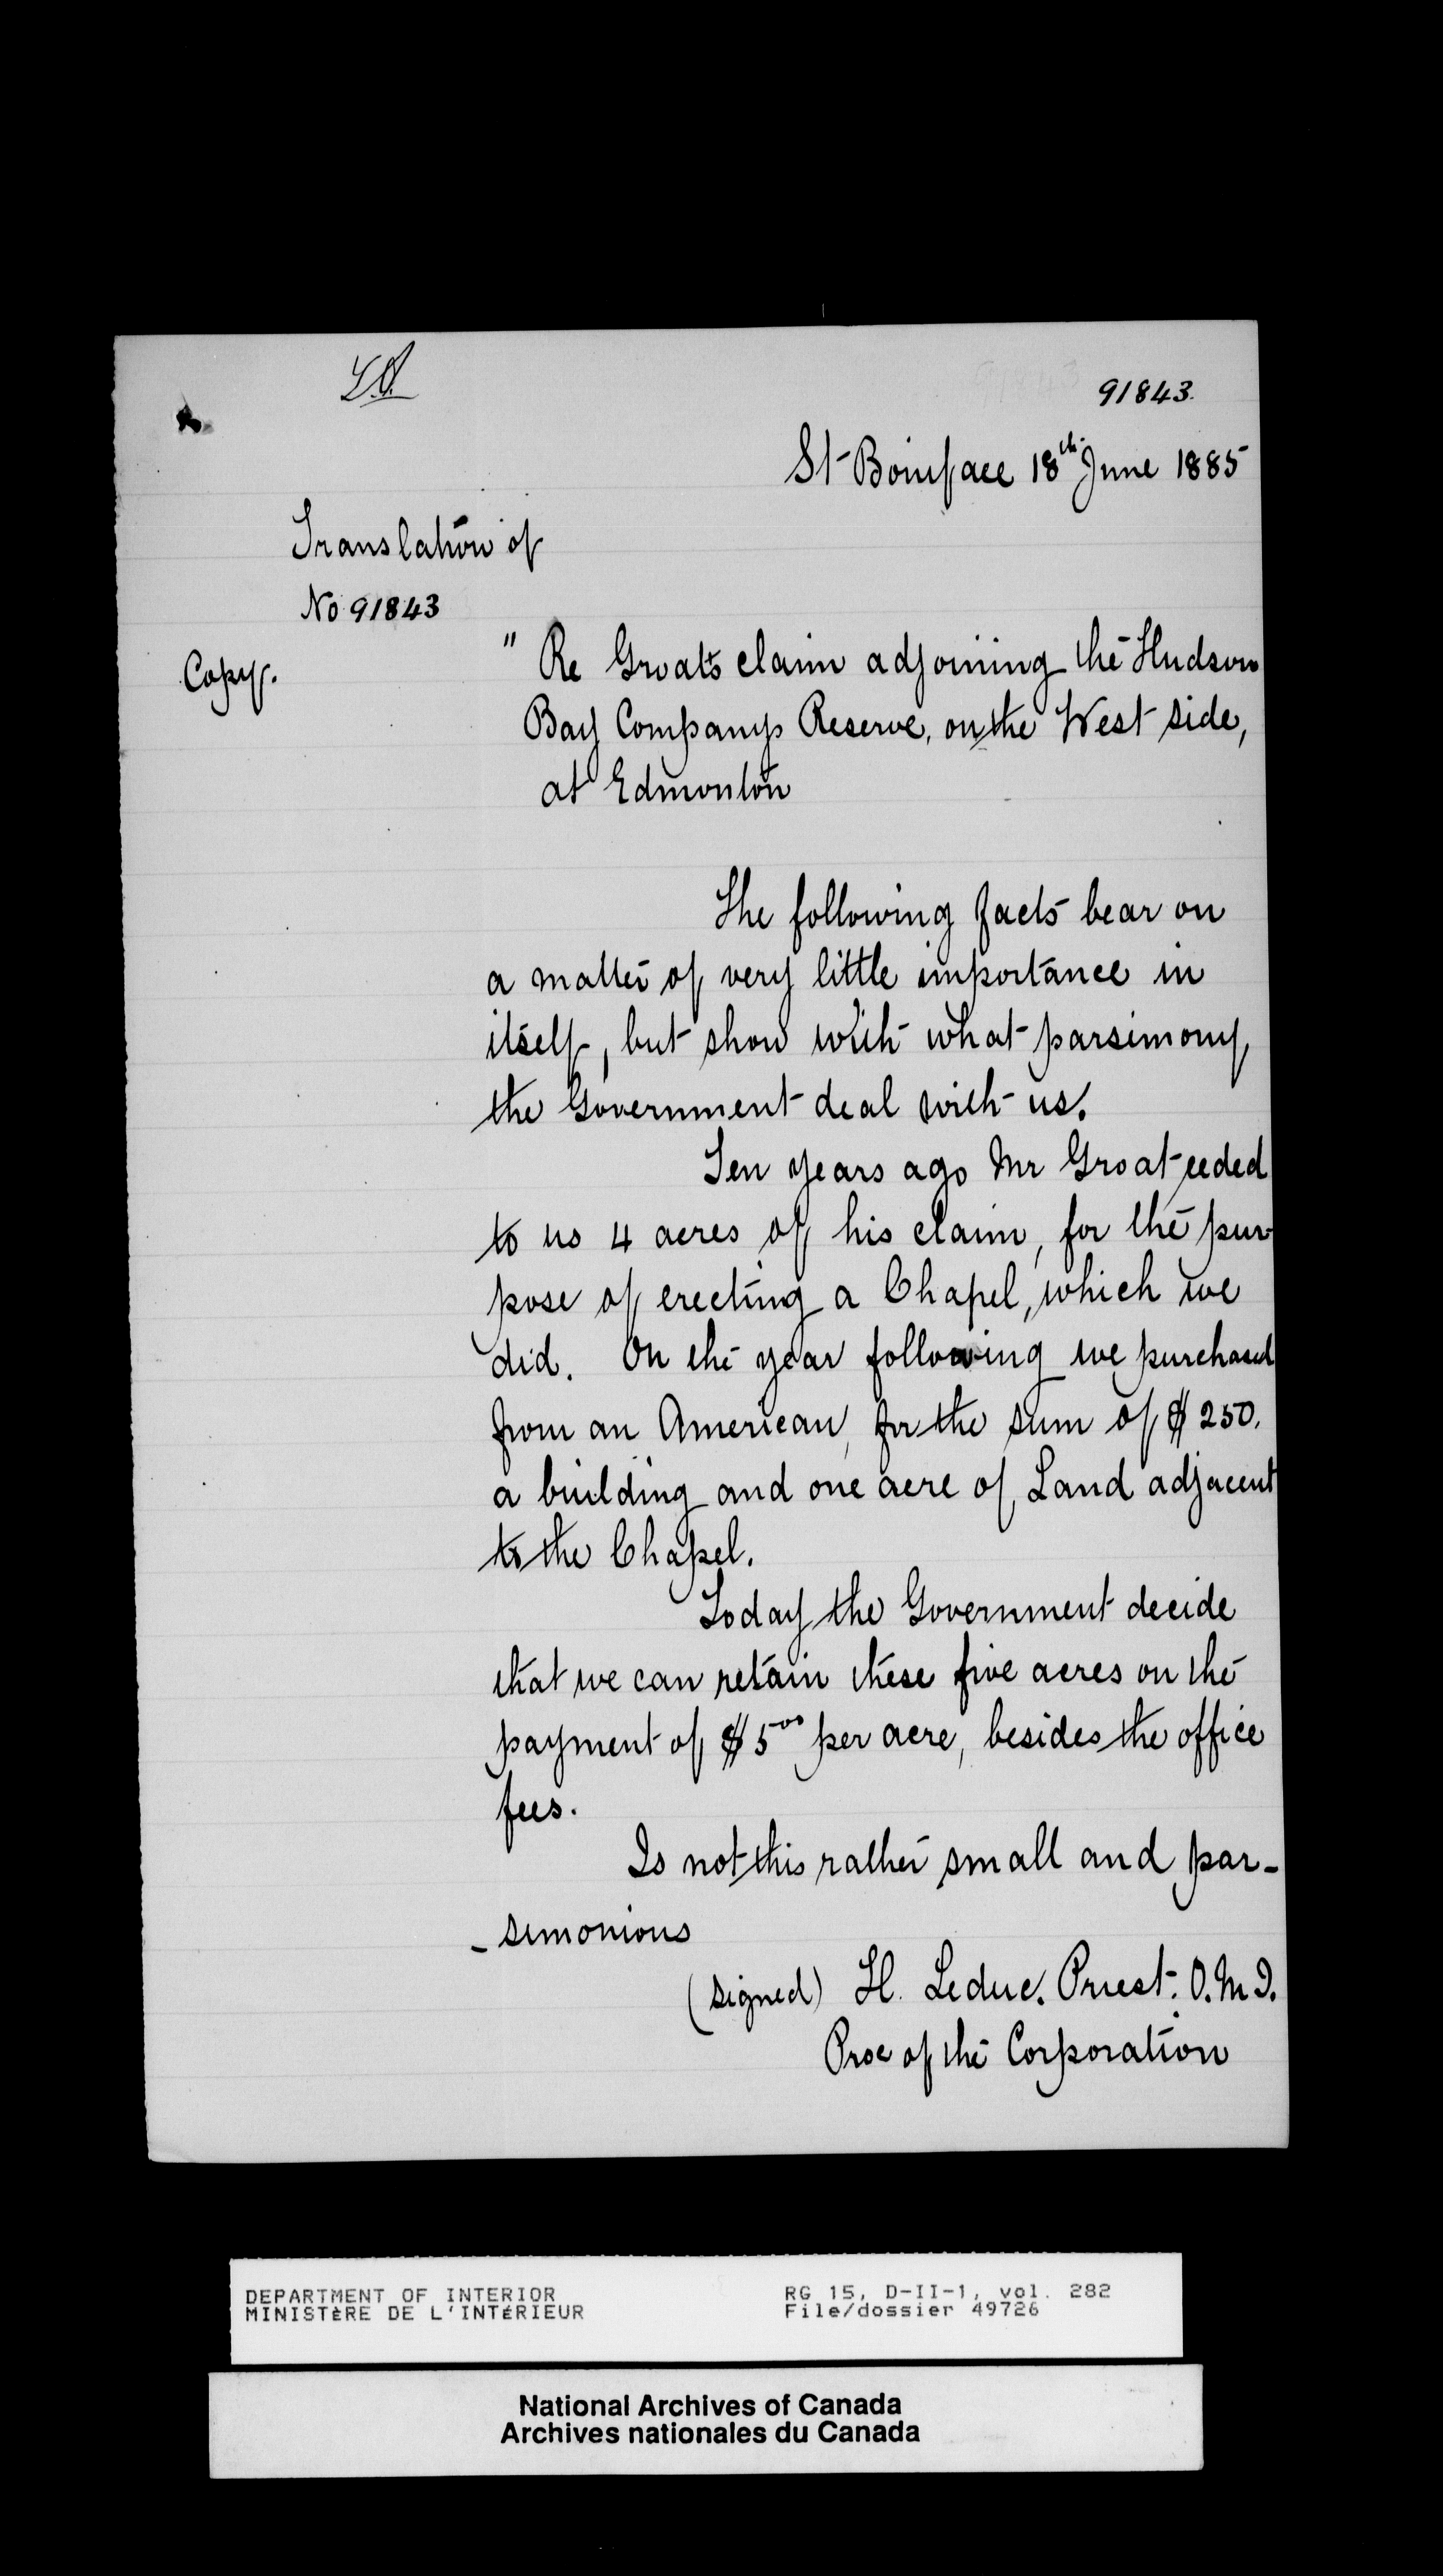 91843.
St Boniface 18th June 1885
Translation of
No 91843
Copy.
" Re Groat's claim adjoining the Hudson
Bay Companys Reserve, on the West side,
at Edmonton
The following facts bear on
a matter of very little importance in
itself, but show with what parsimony
the Government deal with us.
Ten years ago Mr Groat ceded
to us 4 acres of his claim, for the pur-
pose of erecting a Chapel, which we
did. On the year following we purchased
from an American, for the sum of $250.
a building and one acre of Land adjacent
to the Chapel.
Today the Government decide
that we can retain these five acres on the
payment of $5 00 per acre, besides the office
fees.
Is not this rather small and par-
-simonious
(signed) H. Leduc. Priest. O.M.I.
Proc of the Corporation
DEPARTMENT OF INTERIOR
MINISTÈRE DE L'INTÉRIEUR
RG 15, D-II-1, vol. 282
File/dossier 49726
National Archives of Canada
Archives nationales du Canada